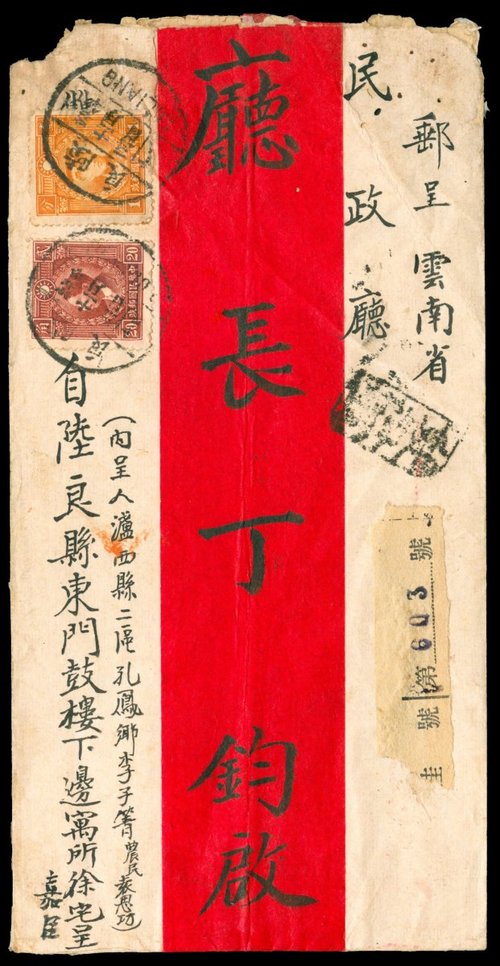 郵呈雲南省
民政廳
廳長丁鈞啟
(內呈人瀘西縣二區孔鳳鄉李子箐農民袁恩功)
自陸良縣東門鼓樓下邊寓所徐宅呈
嘉臣
LIANG
陸良
20
20
號
603
第
號